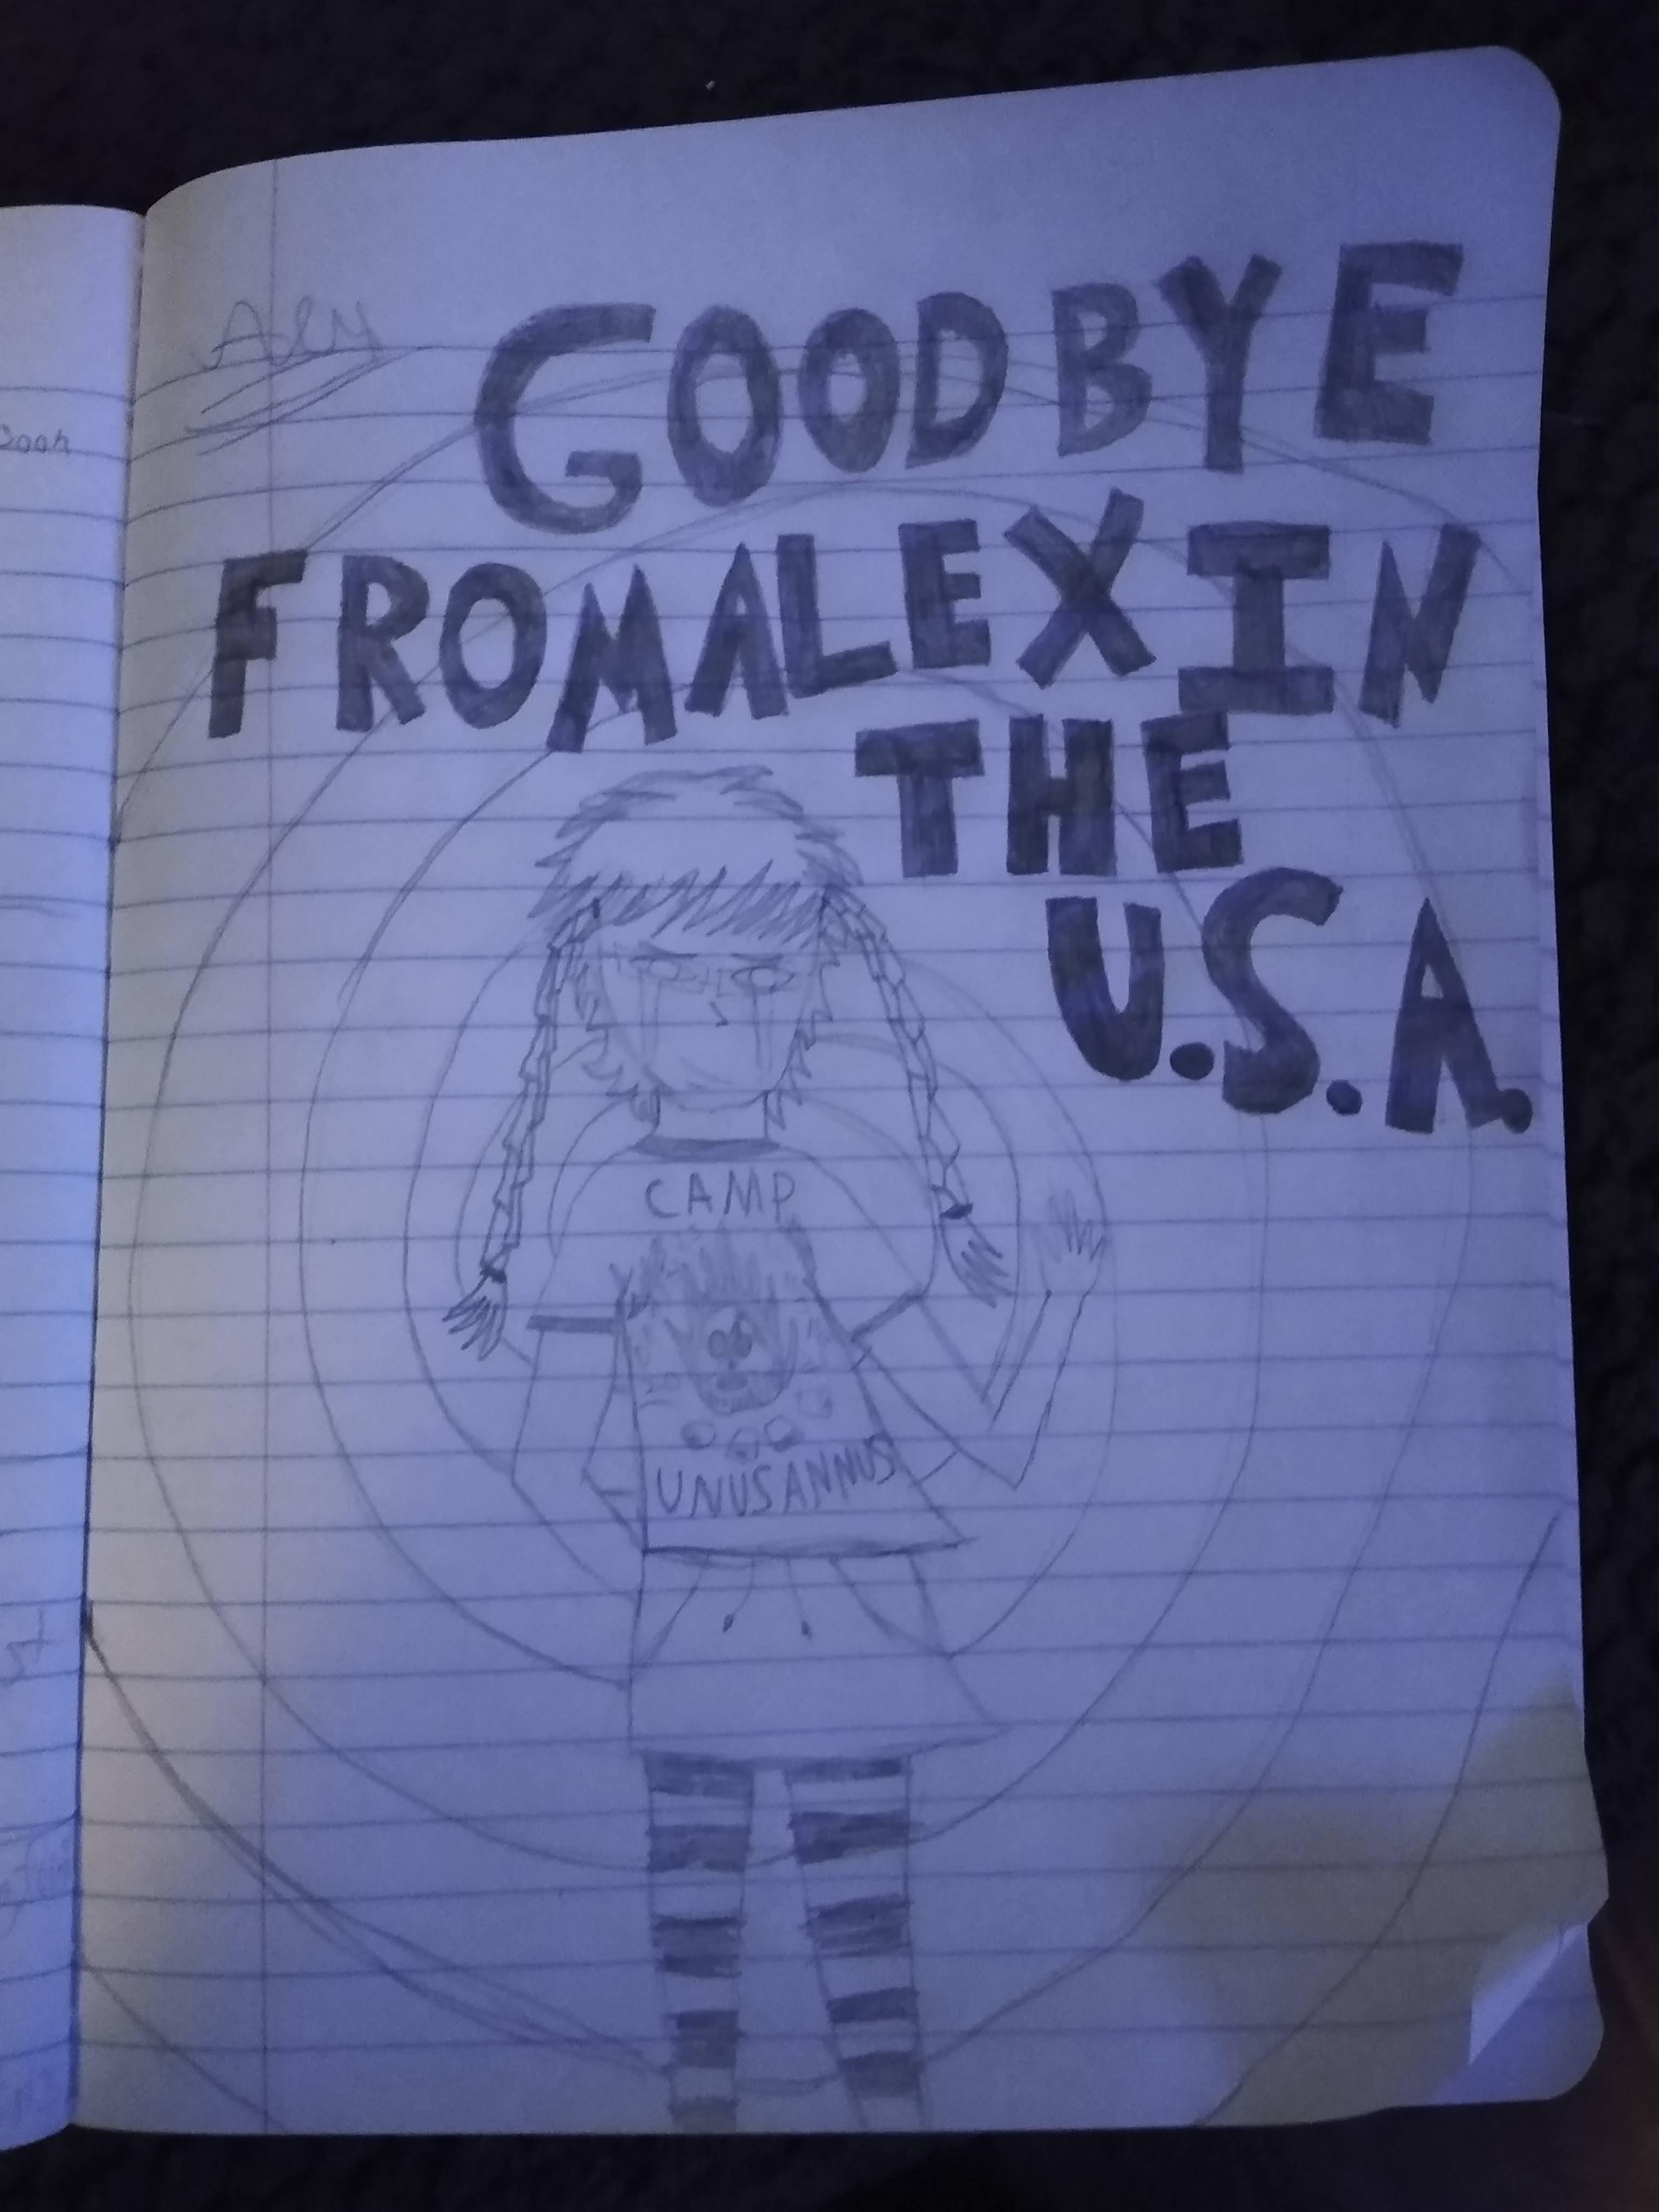 GOODBYE
FROM ALEX IN
THE
U.S.A.
CAMP
UNUS ANNUS